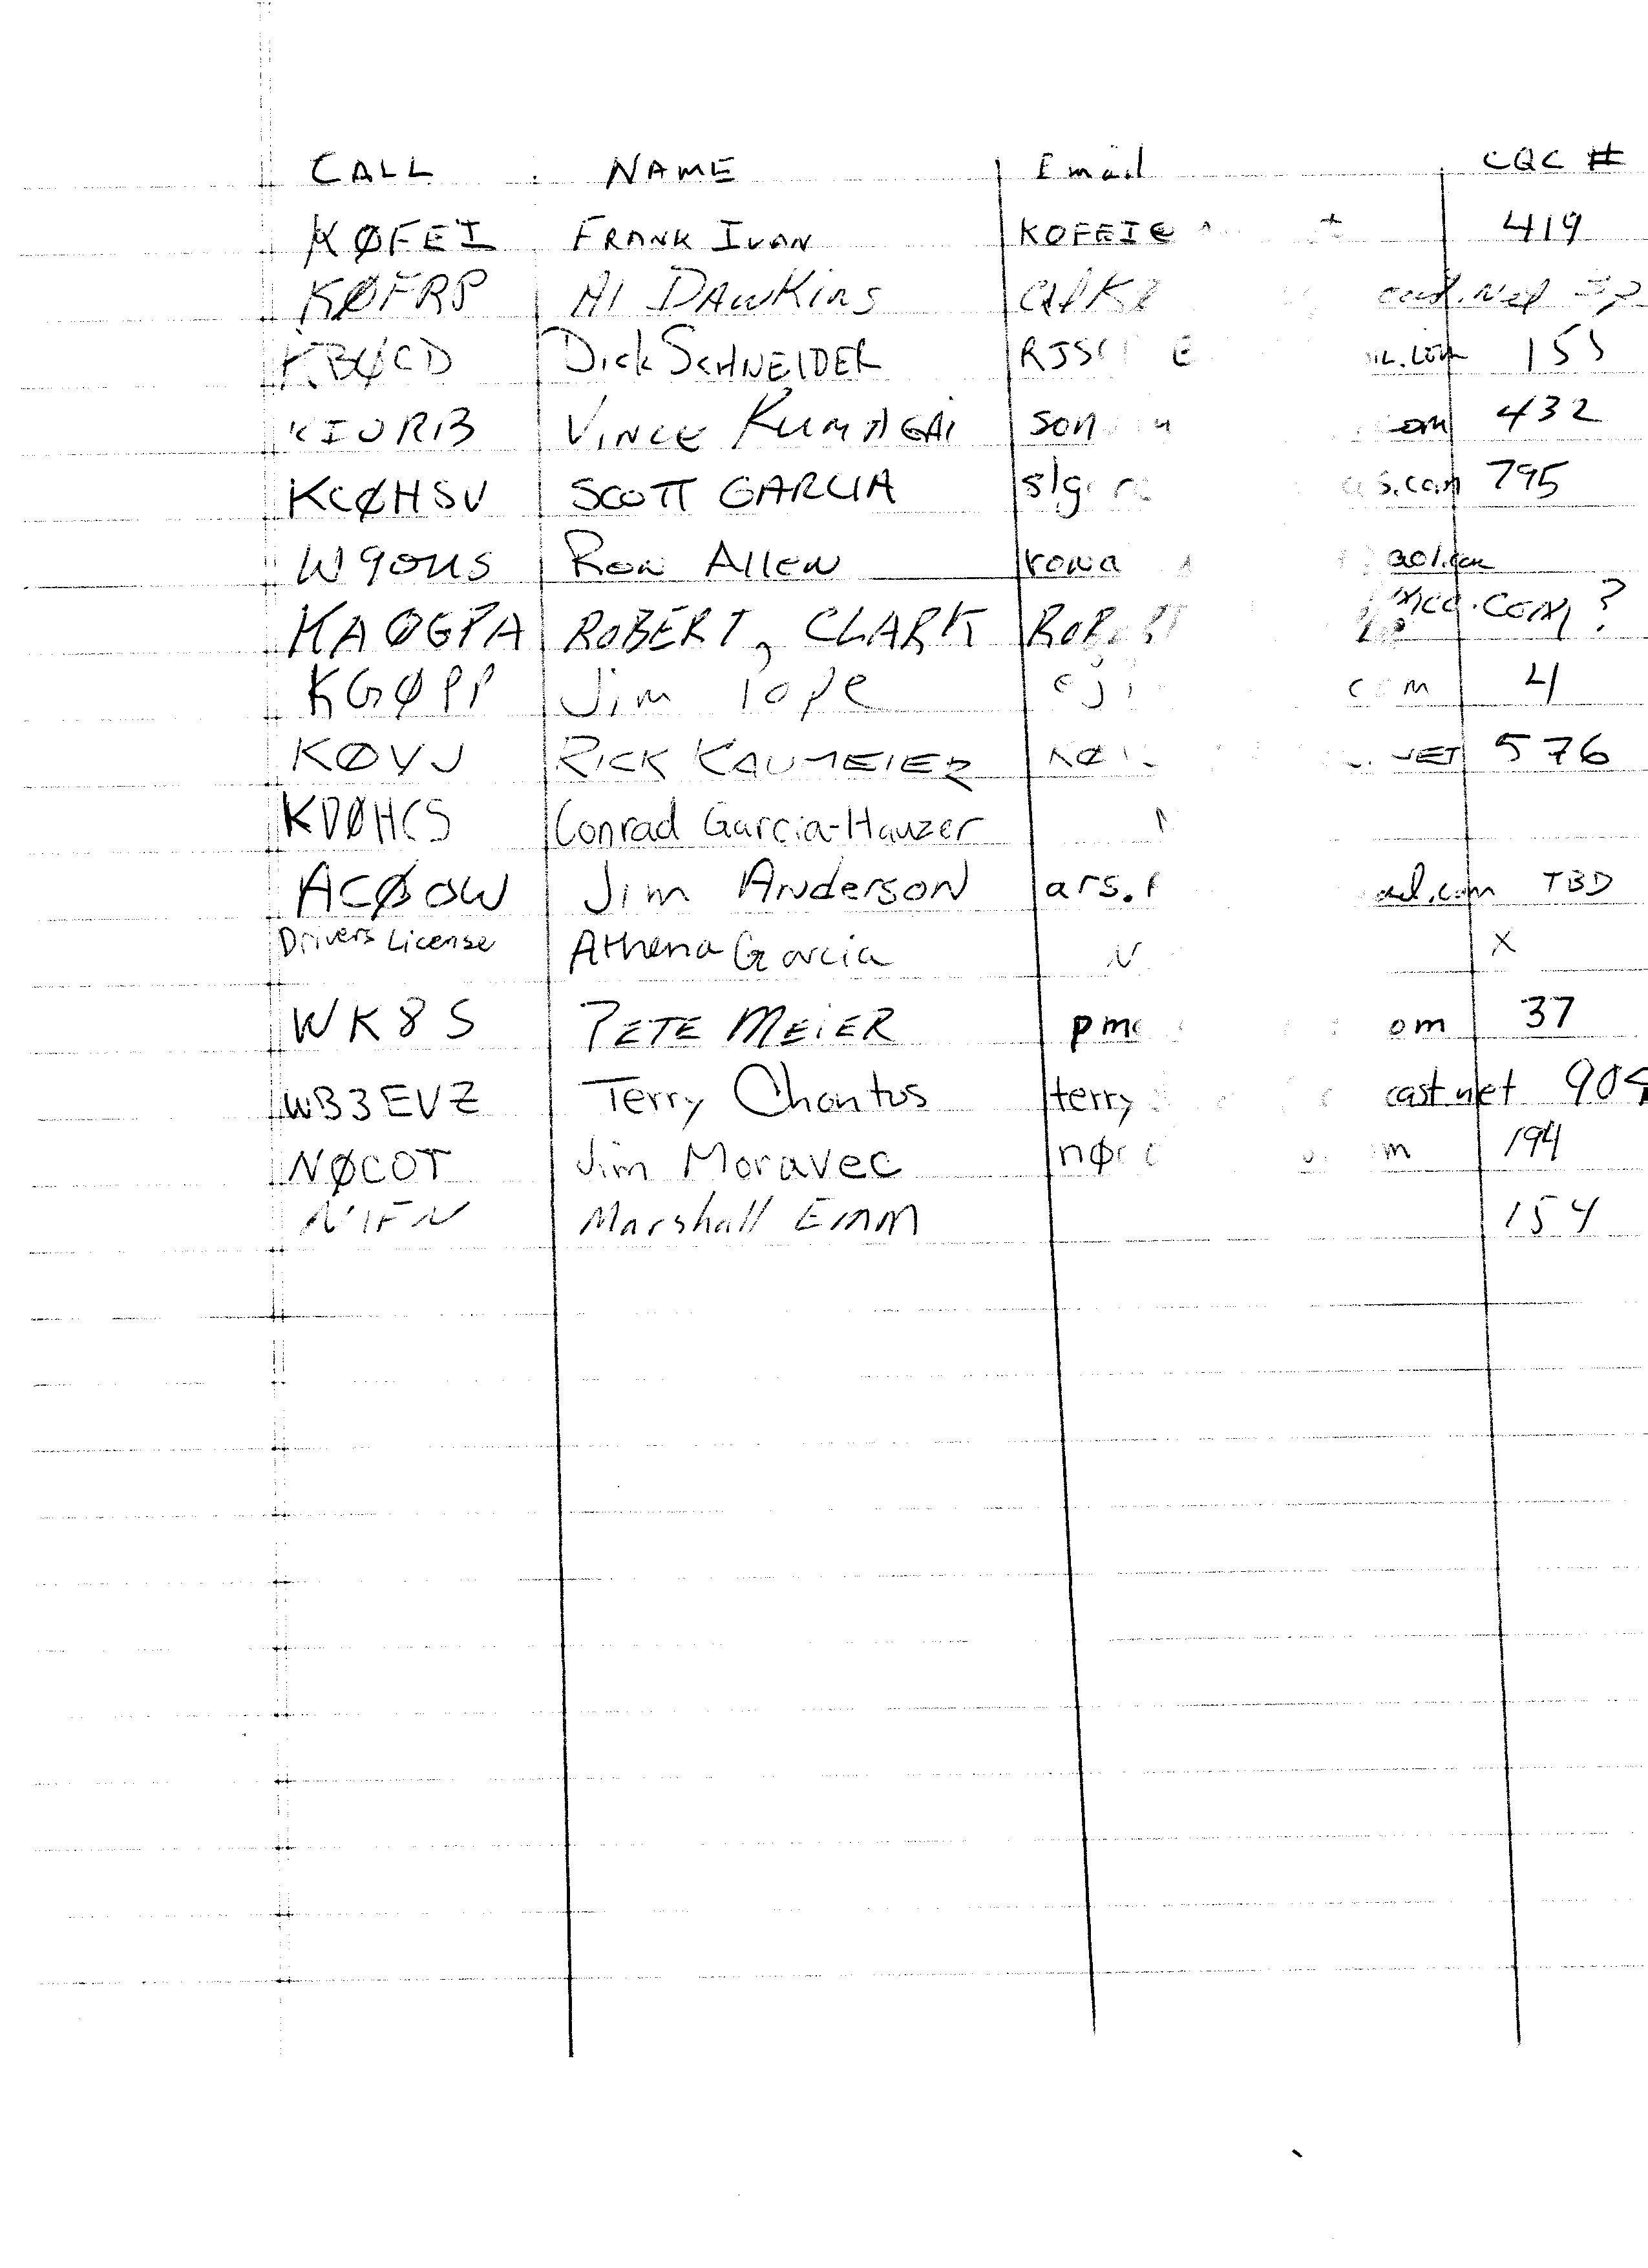 CALL NAME Email CQC #
KØFEI FRANK IVAN KOFEI@ 419
KØFRP Al DAWKins
KBØCD Dick SCHNEIDER 155
VINCE KUMAGAI son om 432
KCØHSV SCOTT GARCIA slg s.com 795
W9OUS Ron Allen rona aol.com
KAØGPA ROBERT, CLARK .COM ?
KGØPP Jim Pope 4
KØVJ RICK KAUMEIER KØ NET 576
KDØHCS Conrad Garcia-Hauzer N
ACØOW Jim Anderson ars. ail.com TBD
Drivers License Athena Garcia N X
WK8S PETE MEIER pme om 37
WB3EVZ Terry Chantus terry cast.net
NØCOT Jim Moravec nØc m 194
N1FN Marshall Emm 154